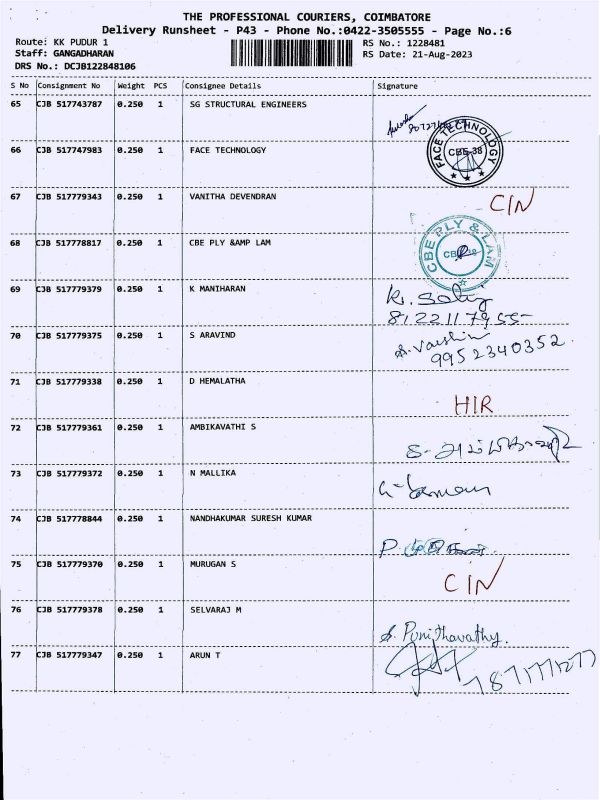 THE PROFESSIONAL COURIERS, COIMBATORE
Delivery Runsheet - P43 - Phone No.:0422-3505555 - Page No.:6
Route: KK PUDUR 1 RS No.: 1228481
Staff: GANGADHARAN RS Date: 21-Aug-2023
DRS No.: DCJB122848106
S No Consignment No Weight PCS Consignee Details Signature
65 CJB 517743787 0.250 1 SG STRUCTURAL ENGINEERS
66 CJB 517747983 0.250 1 FACE TECHNOLOGY FACE TECHNOLOGY CBE-38
67 CJB 517779343 0.250 1 VANITHA DEVENDRAN CIN
68 CJB 517778817 0.250 1 CBE PLY &AMP LAM CBE PLY & LAM
69 CJB 517779379 0.250 1 K MANIHARAN
8122117955
70 CJB 517779375 0.250 1 S ARAVIND
9952340352
71 CJB 517779338 0.250 1 D HEMALATHA HIR
72 CJB 517779361 0.250 1 AMBIKAVATHI S
73 CJB 517779372 0.250 1 N MALLIKA
74 CJB 517778844 0.250 1 NANDHAKUMAR SURESH KUMAR
75 CJB 517779370 0.250 1 MURUGAN S CIN
76 CJB 517779378 0.250 1 SELVARAJ M S. Punithavathy.
77 CJB 517779347 0.250 1 ARUN T